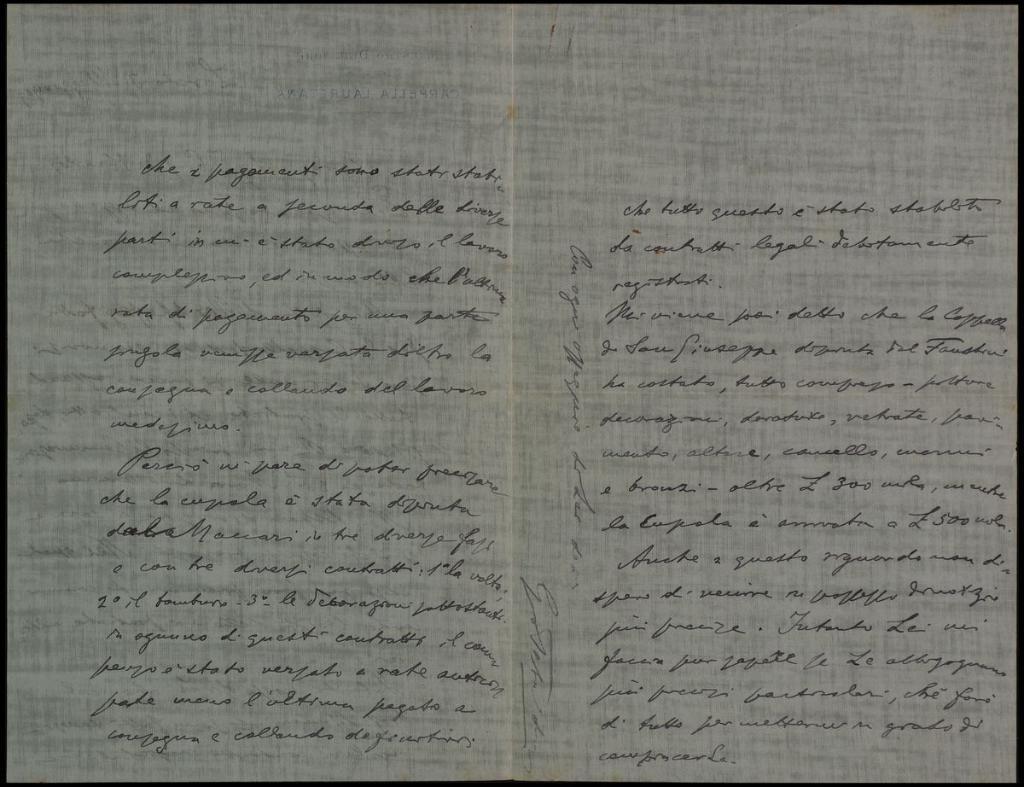 che i pagamenti sono stati stabi-
liti a rate a seconda delle diverse
parti in cui è stato diviso il lavoro
complessivo, ed in modo che l'ultima
rata di pagamento per una parte
singola venisse versata dietro la
consegna e collaudo del lavoro
medesimo.
Perciò mi pare di poter precisare
che la cupola è stata dipinta
dal Maccari in tre diverse fasi
e con tre diversi contratti: 1° la volta,
2° il tamburo - 3° le decorazioni sottostanti.
in ognuno di questi contratti il com
penso è stato versato a rate antici
pate meno l'ultima pagata a
consegna e collaudo definitivi.
che tutto questo è stato stabilito
da contratti legali debitamente
registrati.
Mi viene poi detto che la Cappella
di San Giuseppe dipinta dal Faustini
ha costato, tutto compreso - pitture
decorazioni, dorature, vetrate, pavi-
mento, altare, cancello, marmi
e bronzi - oltre £ 300 mila, mentre
la Cupola è arrivata a £ 500 mila.
Anche a questo riguardo non di-
spero di venire in possesso di notizie
più precise. Intanto Lei mi
faccia pur sapere se Le abbisognano
più precisi particolari, chè farò
di tutto per mettermi in grado di
compiacerLa.
Con ogni ossequio di Lei dev.
CAPPELLA LAURETANA